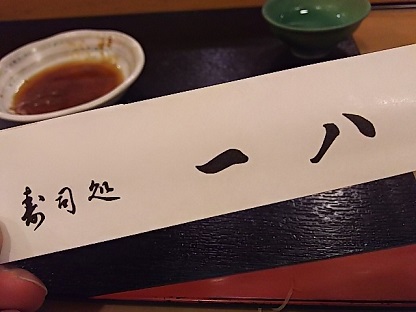 寿司処 一八